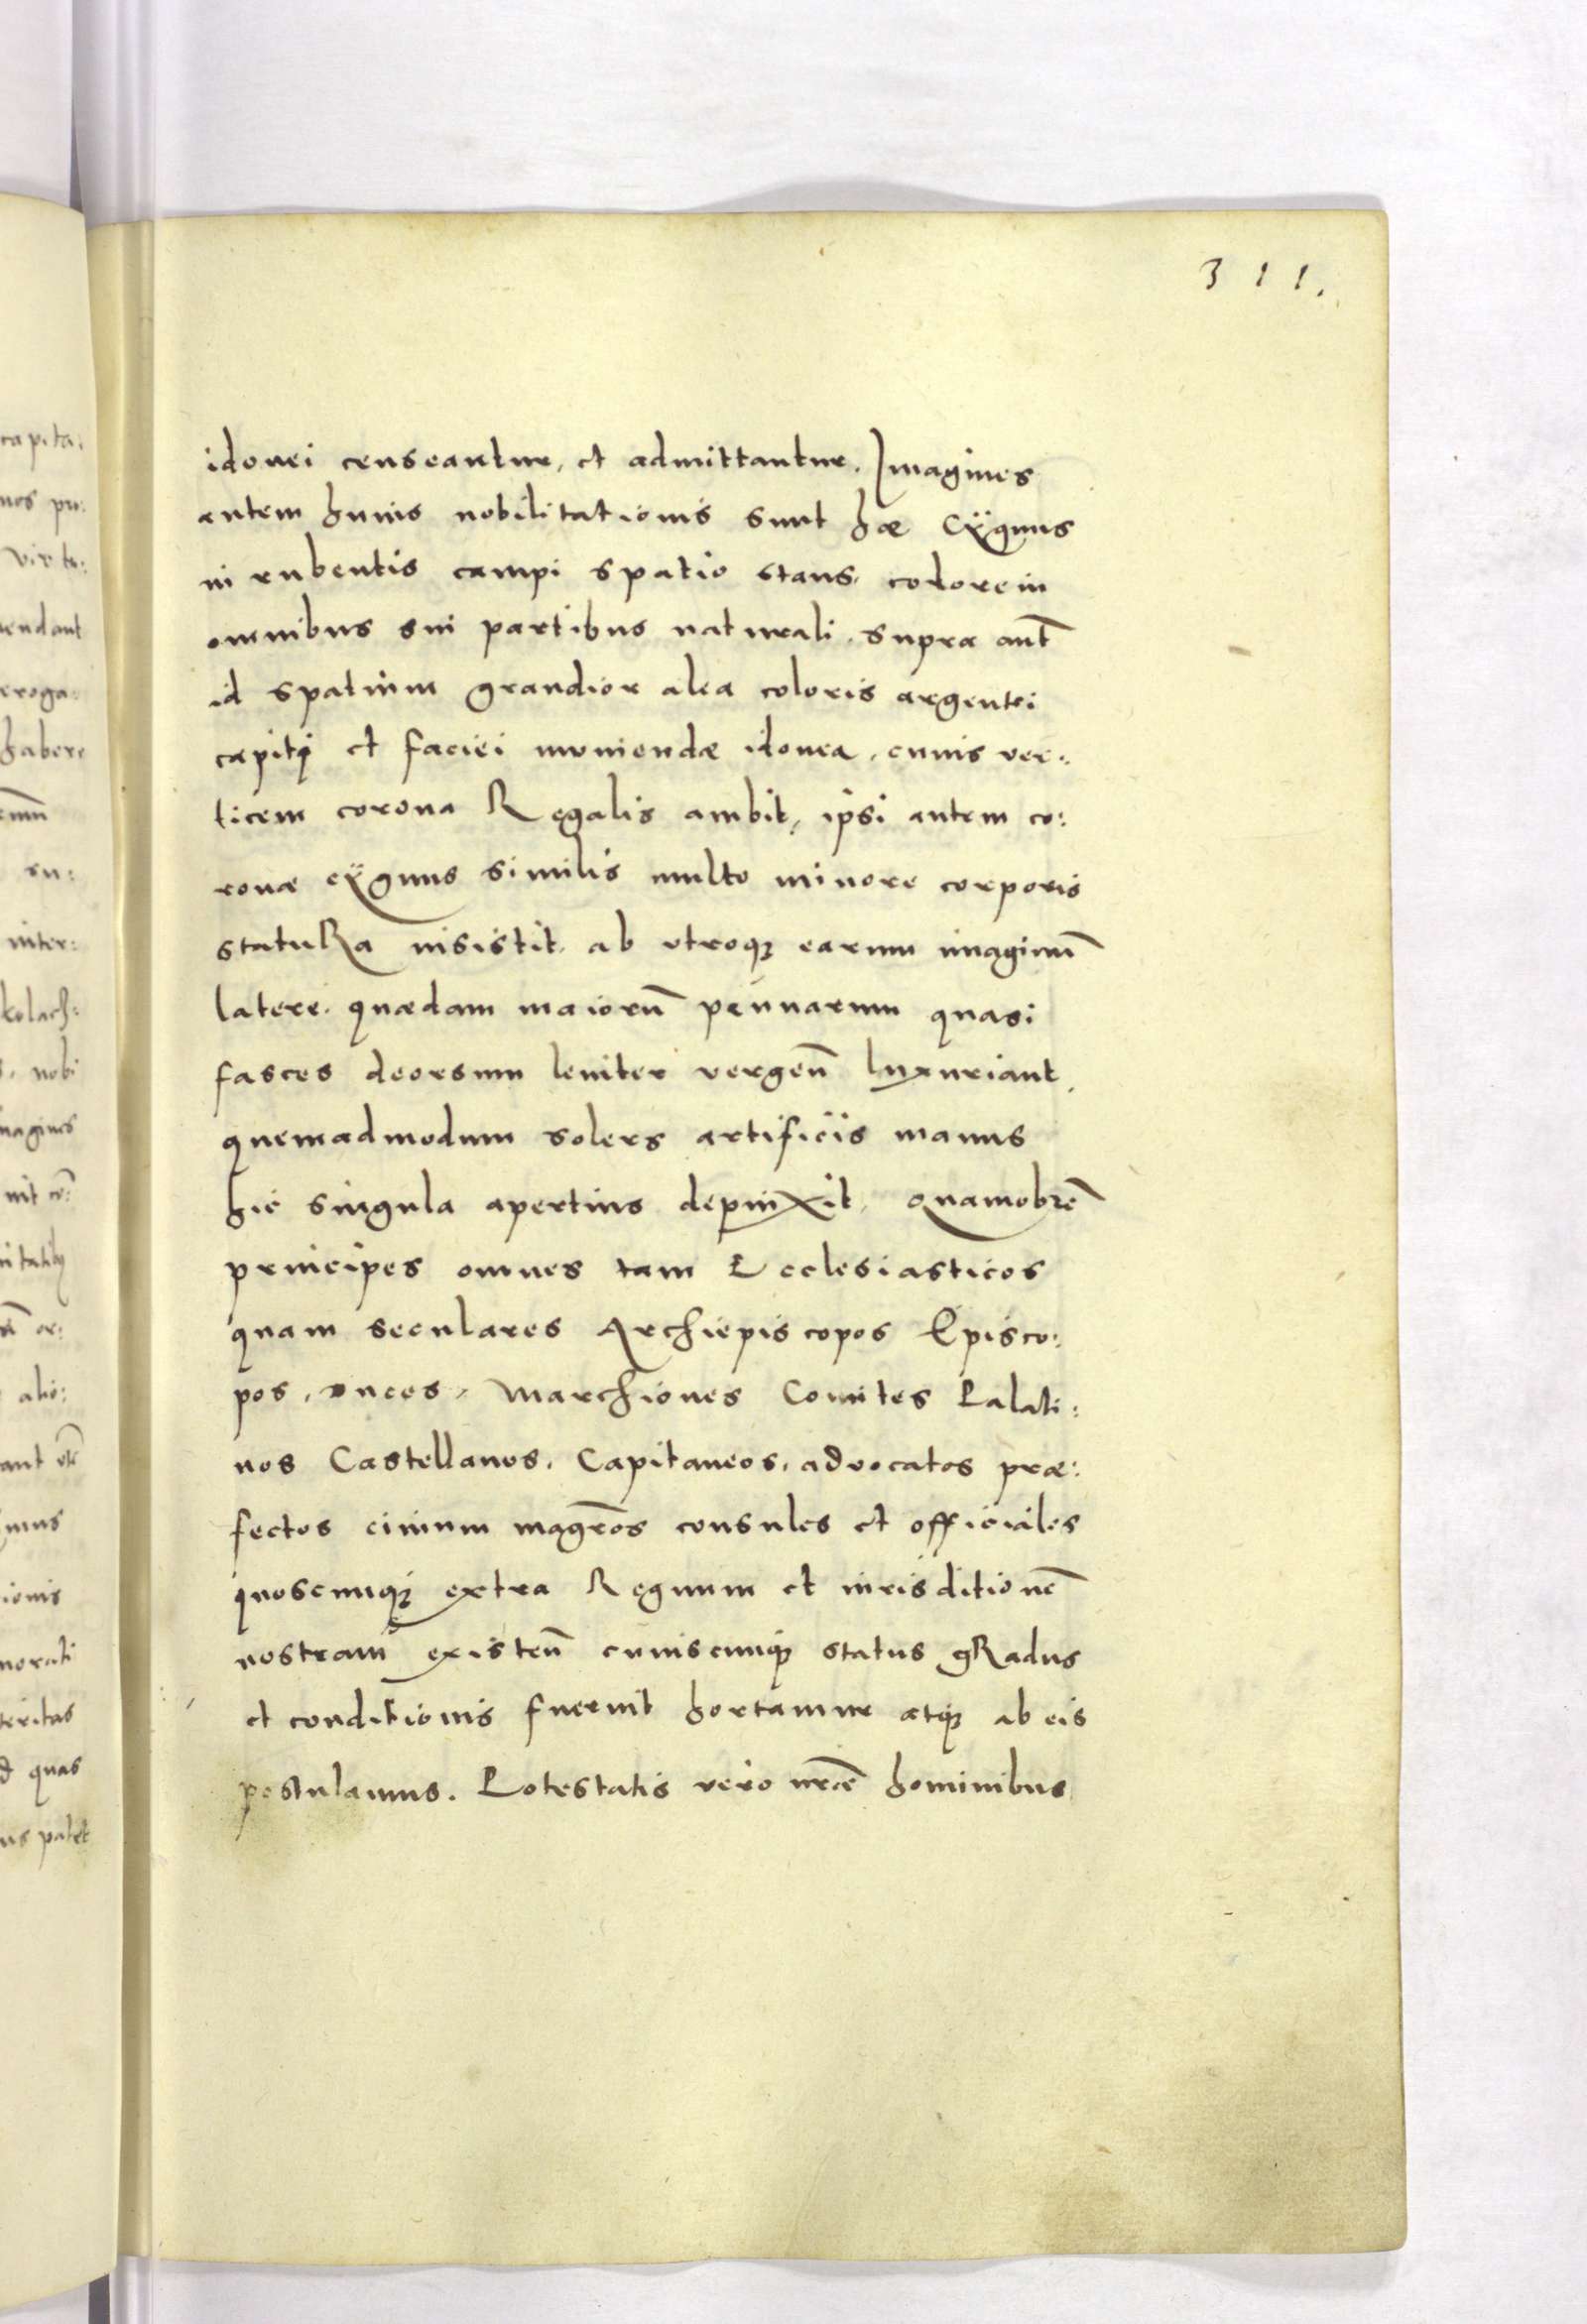 311.
idonei censeantur, et admittantur. Imagines
autem huius nobilitationis sunt hæ Cÿgnus
in rubentis campi spatio stans, colore in
omnibus sui partibus naturali. supra aut̄
id spatium grandior alea coloris argentei
capiti et faciei muniendæ idonea, cuius ver:
ticem corona Regalis ambit, ipsi autem co:
ronæ cÿgnus similis multo minore corporis
statuRa insistit, ab utroq3 earum imaginū
latere, quædam maiorū pennarum quasi
fasces deorsum leniter vergen̄ luxuriant,
quemadmodum solers artificiis manus
hic singula apertius depinxit, Quamobrē
principes omnes tam Ecclesiasticos
quam seculares Archiepiscopos Episco:
pos, Duces, Marchiones Comites Palati:
nos Castellanos, Capitaneos, advocatos præ:
fectos civium magr̄os consules et officiales
quoscunq3 extra Regnum et iurisditionē
nostram existen̄ cuiuscunq3 status gRadus
et conditionis fuerint hortamur atq3 ab eis
postulamus. Potestatis vero nr̄æ hominibus
capita:
mos pu:
virtu:
tendant
eroga:
habere
inter:
kolach:
nobi
imagines
alio:
ionis
morati
teritas
quas
us patet